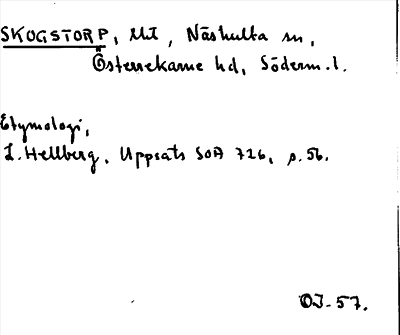 SKOGSTORP, Ut, Näshulta sn,
Österrekarne hd, Söderm. l.
Etymologi,
L. Hellberg, Uppsats SOA 726, s. 56.
OJ-57.